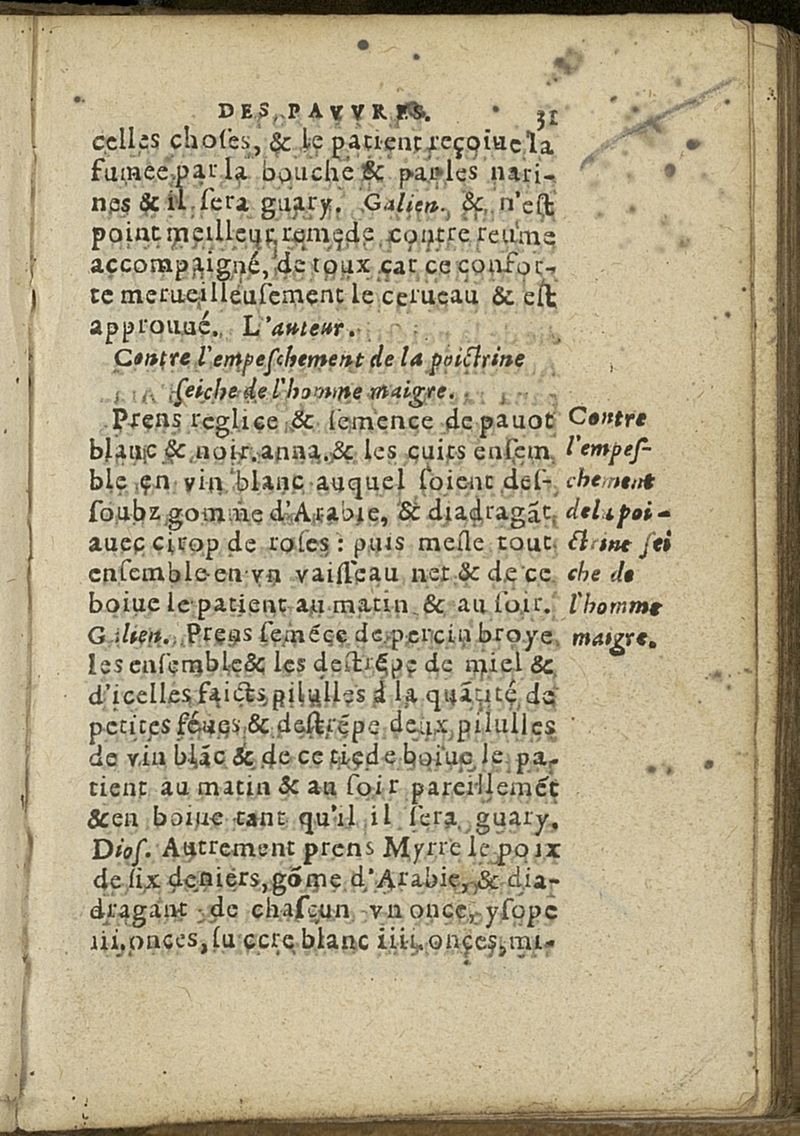 DES PAVVRES. 31
celles choſes, & le patient reçoiue la
fumee par la bouche & par les nari-
nes & il ſera guary. Galien. & n'eſt
point meilleur remede contre reume
accompaigné, de toux car ce confor-
te merueilleuſement le cerueau & eſt
approuué. L'auteur.
Contre l'empeſchement de la poictrine
ſeiche de l'homme maigre.
Prens reglice & ſemence de pauot
blanc & noir. anna. & les cuits enſem
ble en vin blanc auquel ſoient deſ-
ſoubz gomme d'Arabie, & diadragãt
auec cirop de roſes : puis meſle tout
enſemble en vn vaiſſeau net & de ce
boiue le patient au matin & au ſoir.
Galien. Prens ſeméce de percin broye
les enſemble & les deſtrépe de miel &
d'icelles faicts pilulles à la quãtité de
petites féues & deſtrépe deux pilulles
de vin blãc & de ce tiede boiue le pa-
tient au matin & au ſoir pareillemét
& en boiue tant qu'il il ſera guary.
Dioſ. Autrement prens Myrre le poix
de ſix deniers, gõme d'Arabie, & dia-
dragant de chaſcun vn once, yſope
iii. onces, ſuccre blanc iiii. onces, mi-
Contre
l'empeſ-
chement
de la poi-
ctrine ſei
che de
l'homme
maigre.